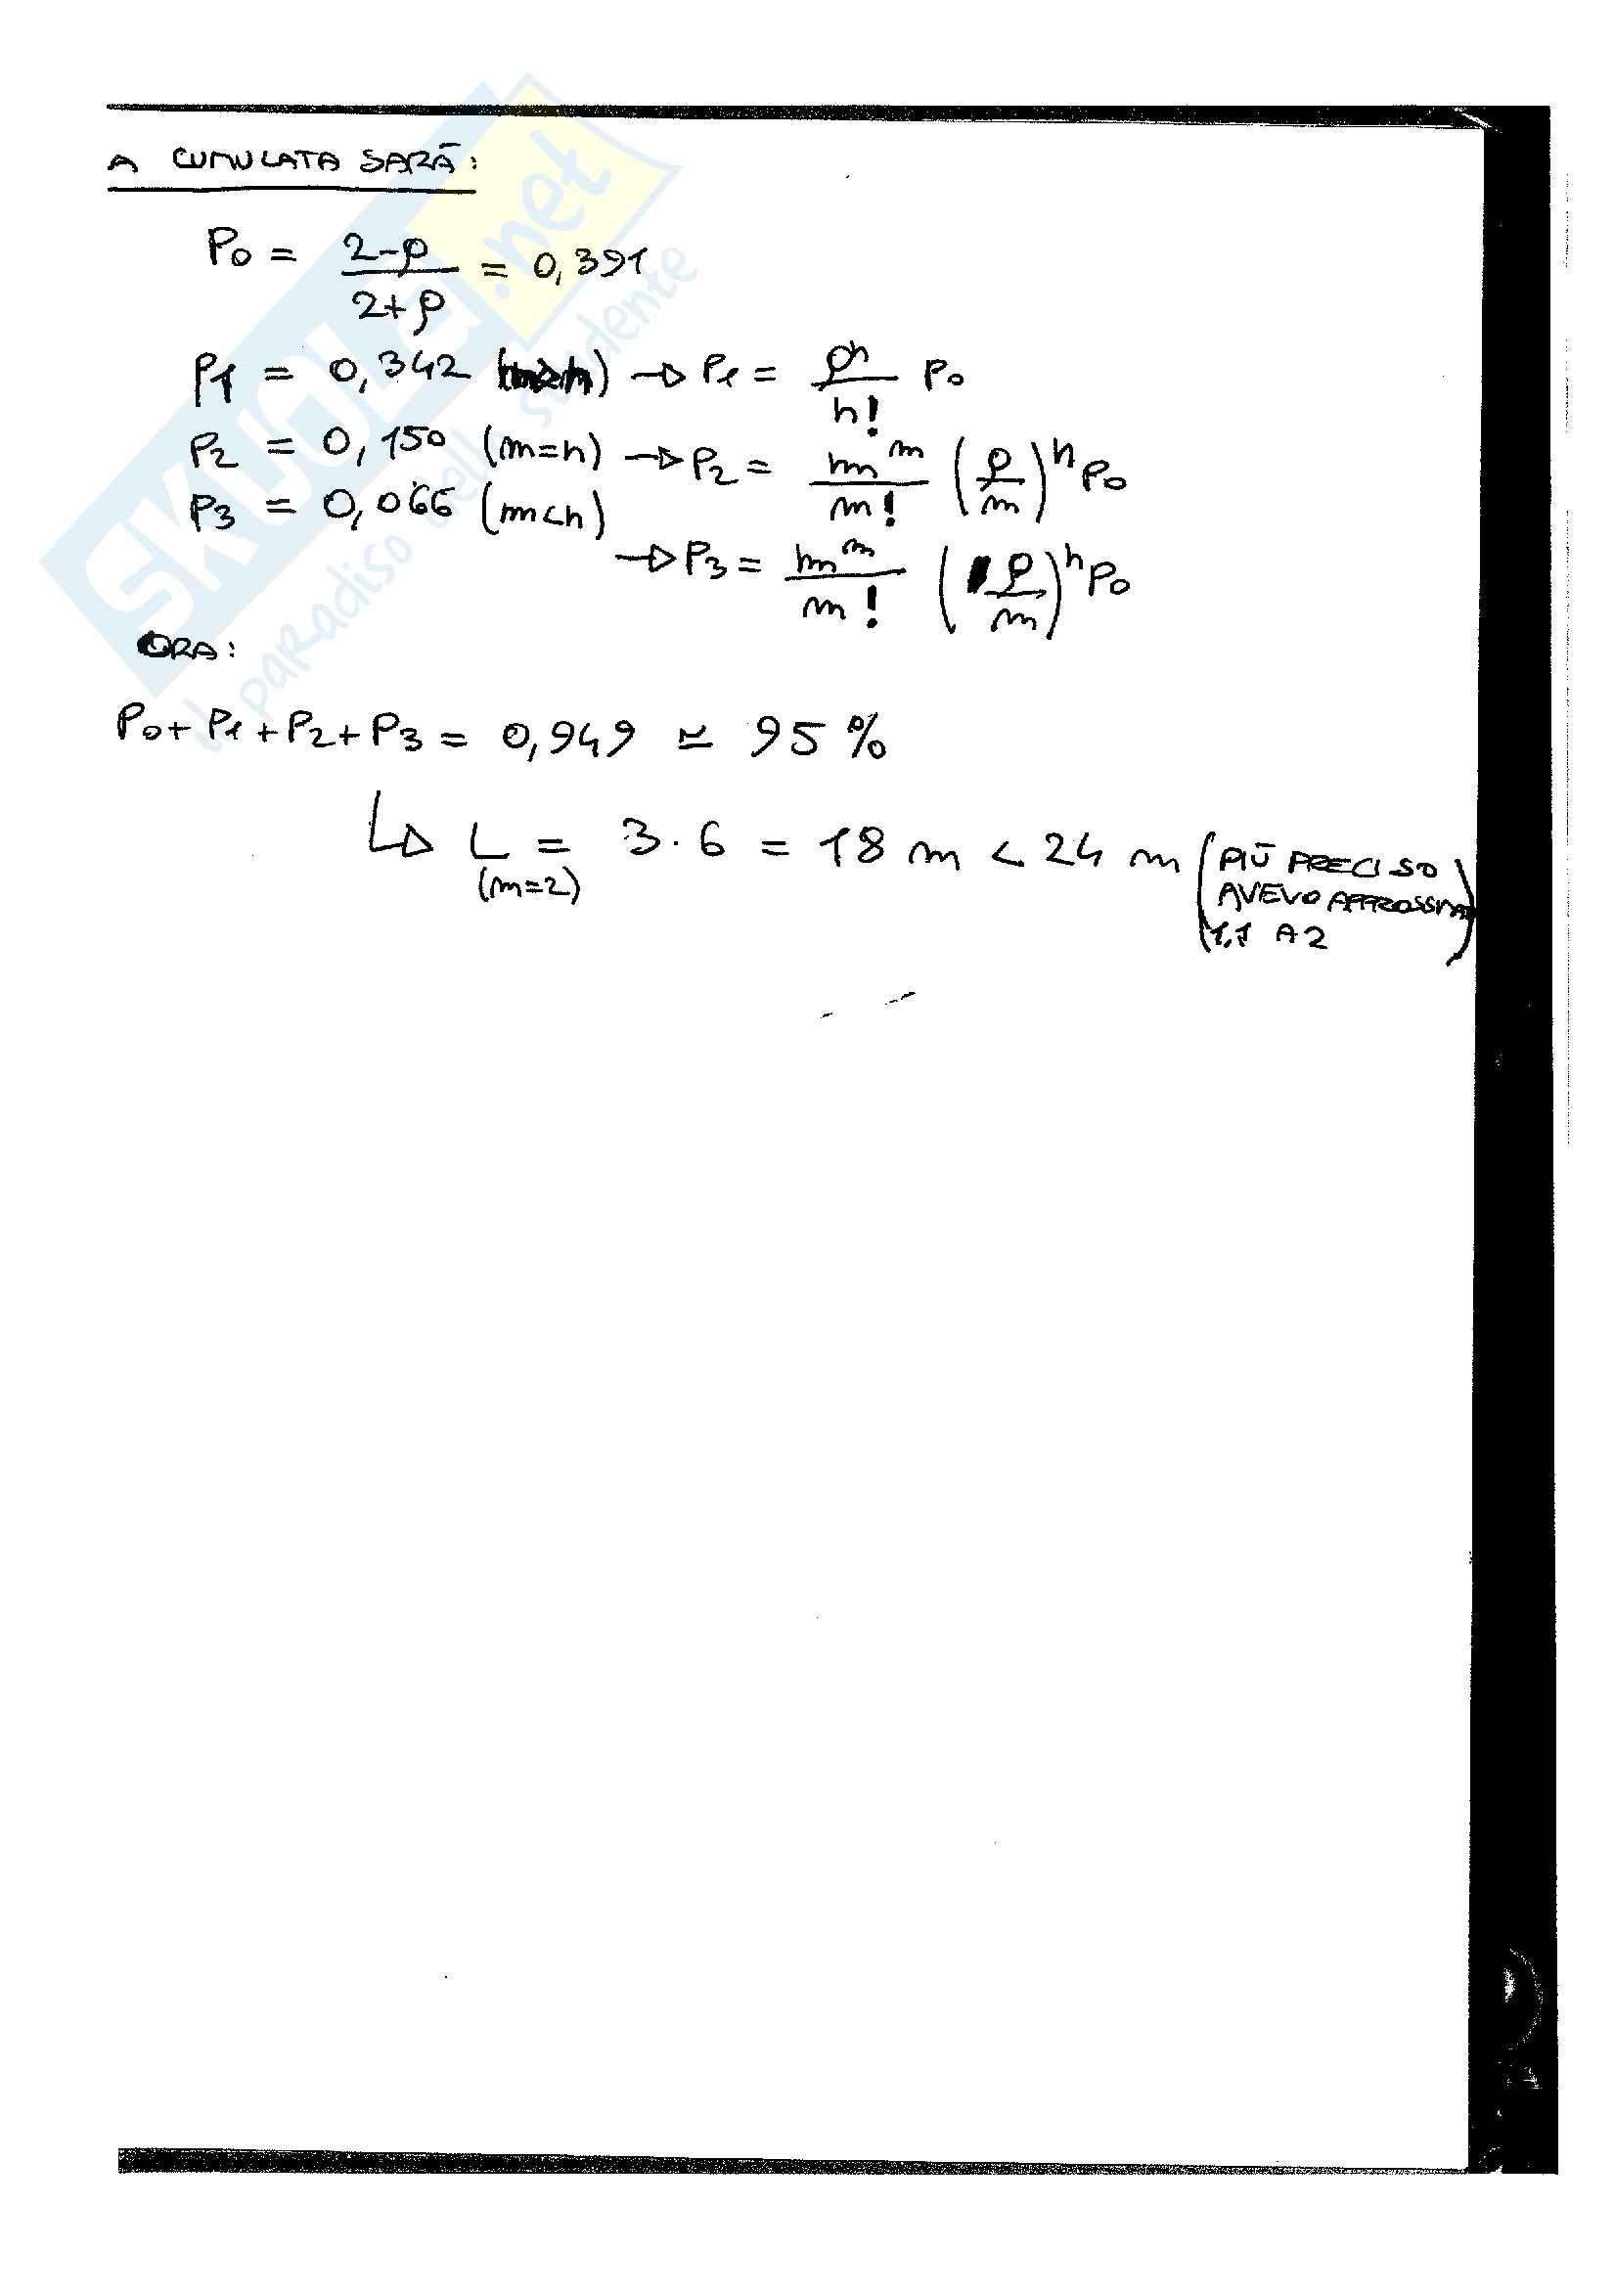 A CUMULATA SARÀ:
P0 = 2-ρ / 2+ρ = 0,391
P1 = 0,342 → P1 = ρ^n / n! P0
P2 = 0,150 (m=n) → P2 = m^m / m! (ρ/m)^n P0
P3 = 0,066 (m<n)
→ P3 = m^m / m! (ρ/m)^n P0
ORA:
P0 + P1 + P2 + P3 = 0,949 ≃ 95 %
↳ L = 3·6 = 18 m < 24 m (PIÙ PRECISO
(m=2)
AVEVO
A 2)
SKUOLA.net
il paradiso dello studente